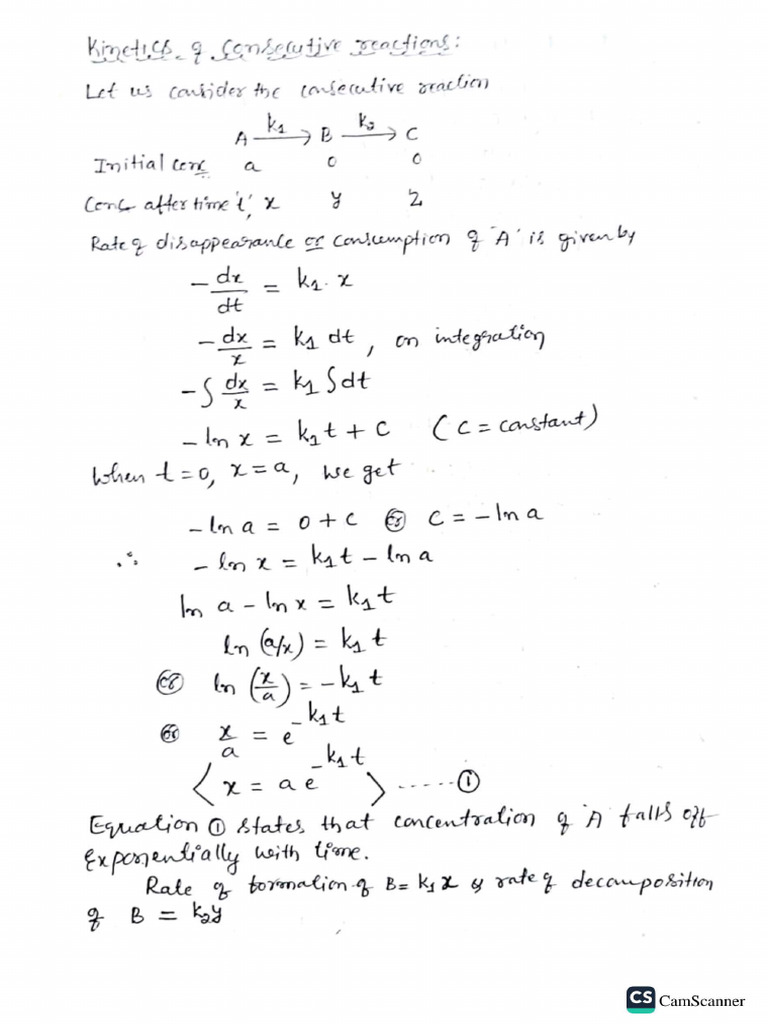 Kinetics of consecutive reactions:
Let us consider the consecutive reaction
A —k₁→ B —k₂→ C
Initial conc a 0 0
Conc after time 't', x y z
Rate of disappearance or consumption of 'A' is given by
- dx/dt = k₁. x
- dx/x = k₁ dt, on integration
- ∫ dx/x = k₁ ∫dt
- ln x = k₁t + c (c = constant)
When t=0, x=a, we get
- ln a = 0 + c or c = - ln a
∴ - ln x = k₁t - ln a
ln a - ln x = k₁t
ln (a/x) = k₁ t
or ln (x/a) = - k₁ t
or x/a = e^-k₁t
⟨ x = a e^-k₁t ⟩ ...... ①
Equation ① states that concentration of 'A' falls off
exponentially with time.
Rate of formation of B = k₁x & rate of decomposition
of B = k₂y
CS CamScanner